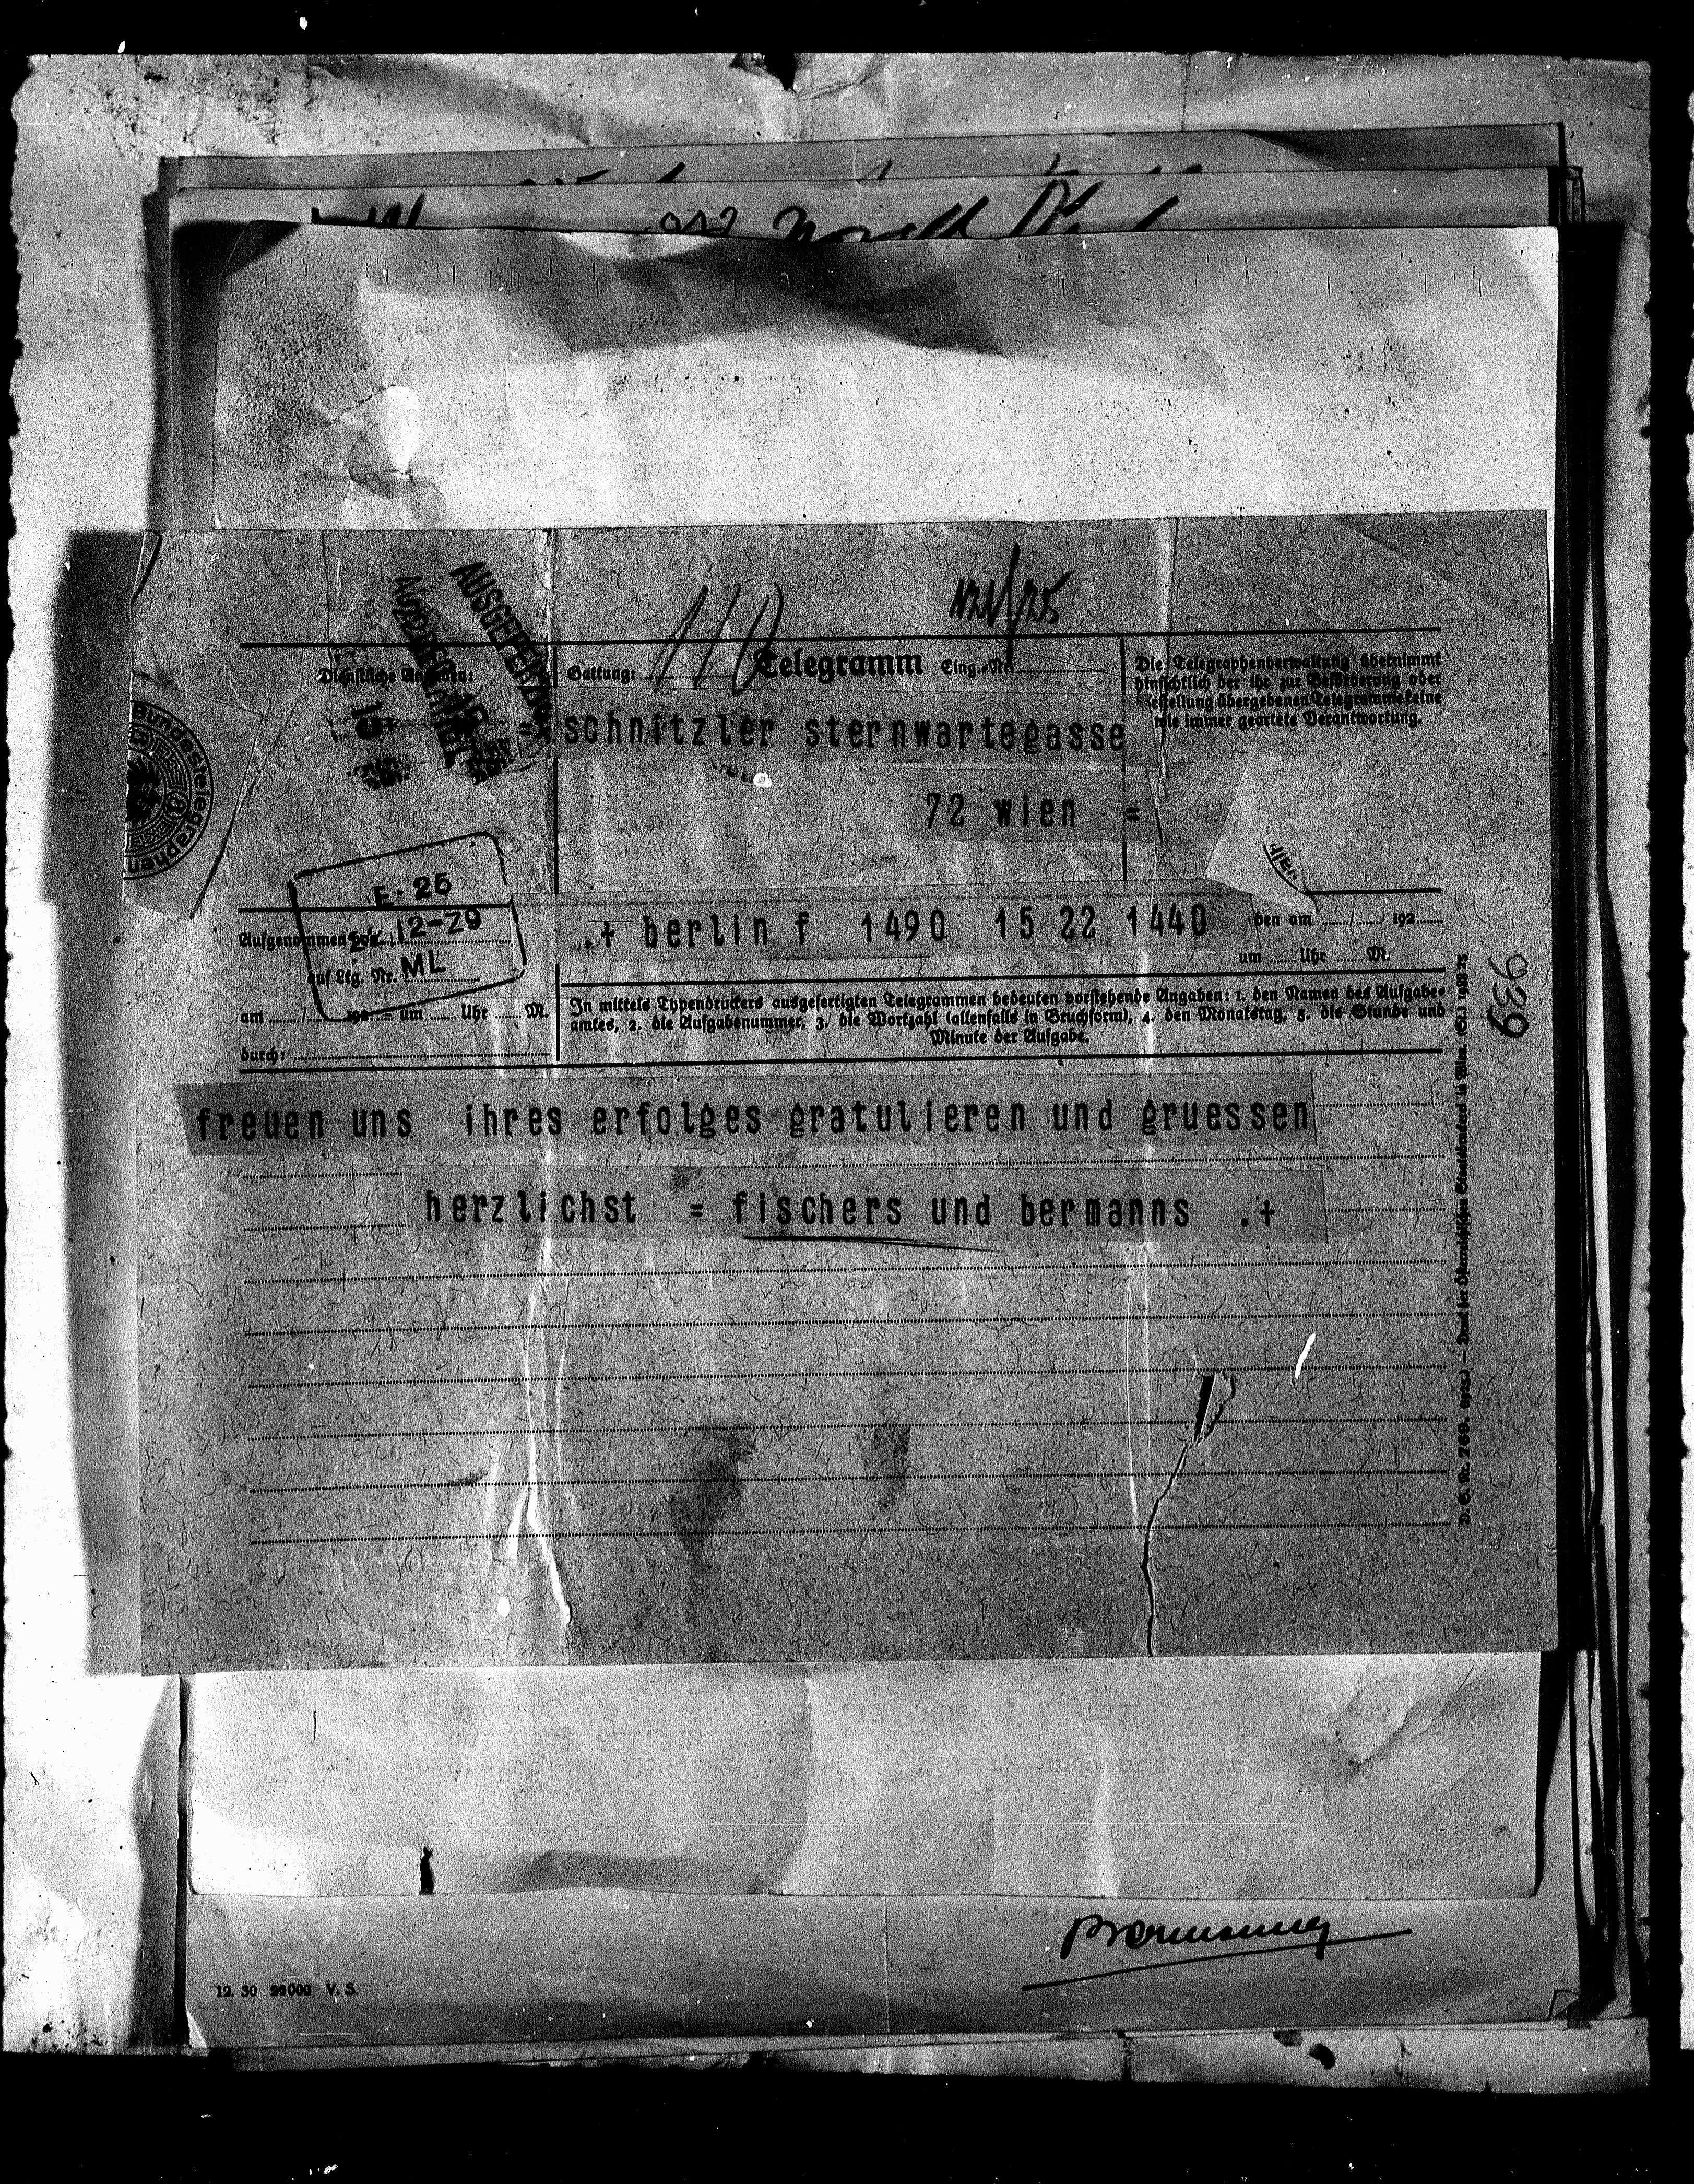 AUSGEFERTIGT
Telegramm
Dienstliche Angaben:
Gattung:
Eing.-Nr.
Die Telegraphenverwaltung übernimmt
hinsichtlich der ihr zur Beförderung oder
übergebenen Telegramme keine
wie immer geartete Verantwortung.
= schnitzler sternwartegasse
72 wien =
Bundestelegraphen
E-25
12-29
ML
Aufgenommen von
auf Ltg. Nr.
am / 192 um Uhr M.
durch:
.+ berlin f 1490 15 22 1440
den am / 192
um Uhr M.
In mittels Typendruckers ausgefertigten Telegrammen bedeuten vorstehende Angaben: 1. den Namen des Aufgabe-
amtes, 2. die Aufgabenummer, 3. die Wortzahl (allenfalls in Bruchform), 4. den Monatstag, 5. die Stunde und
Minute der Aufgabe.
939
freuen uns ihres erfolges gratulieren und gruessen
herzlichst = fischers und bermanns .+
D. S. Nr. 769. — Druck der Österreichischen Staatsdruckerei in Wien.
12. 30 99000 V. S.